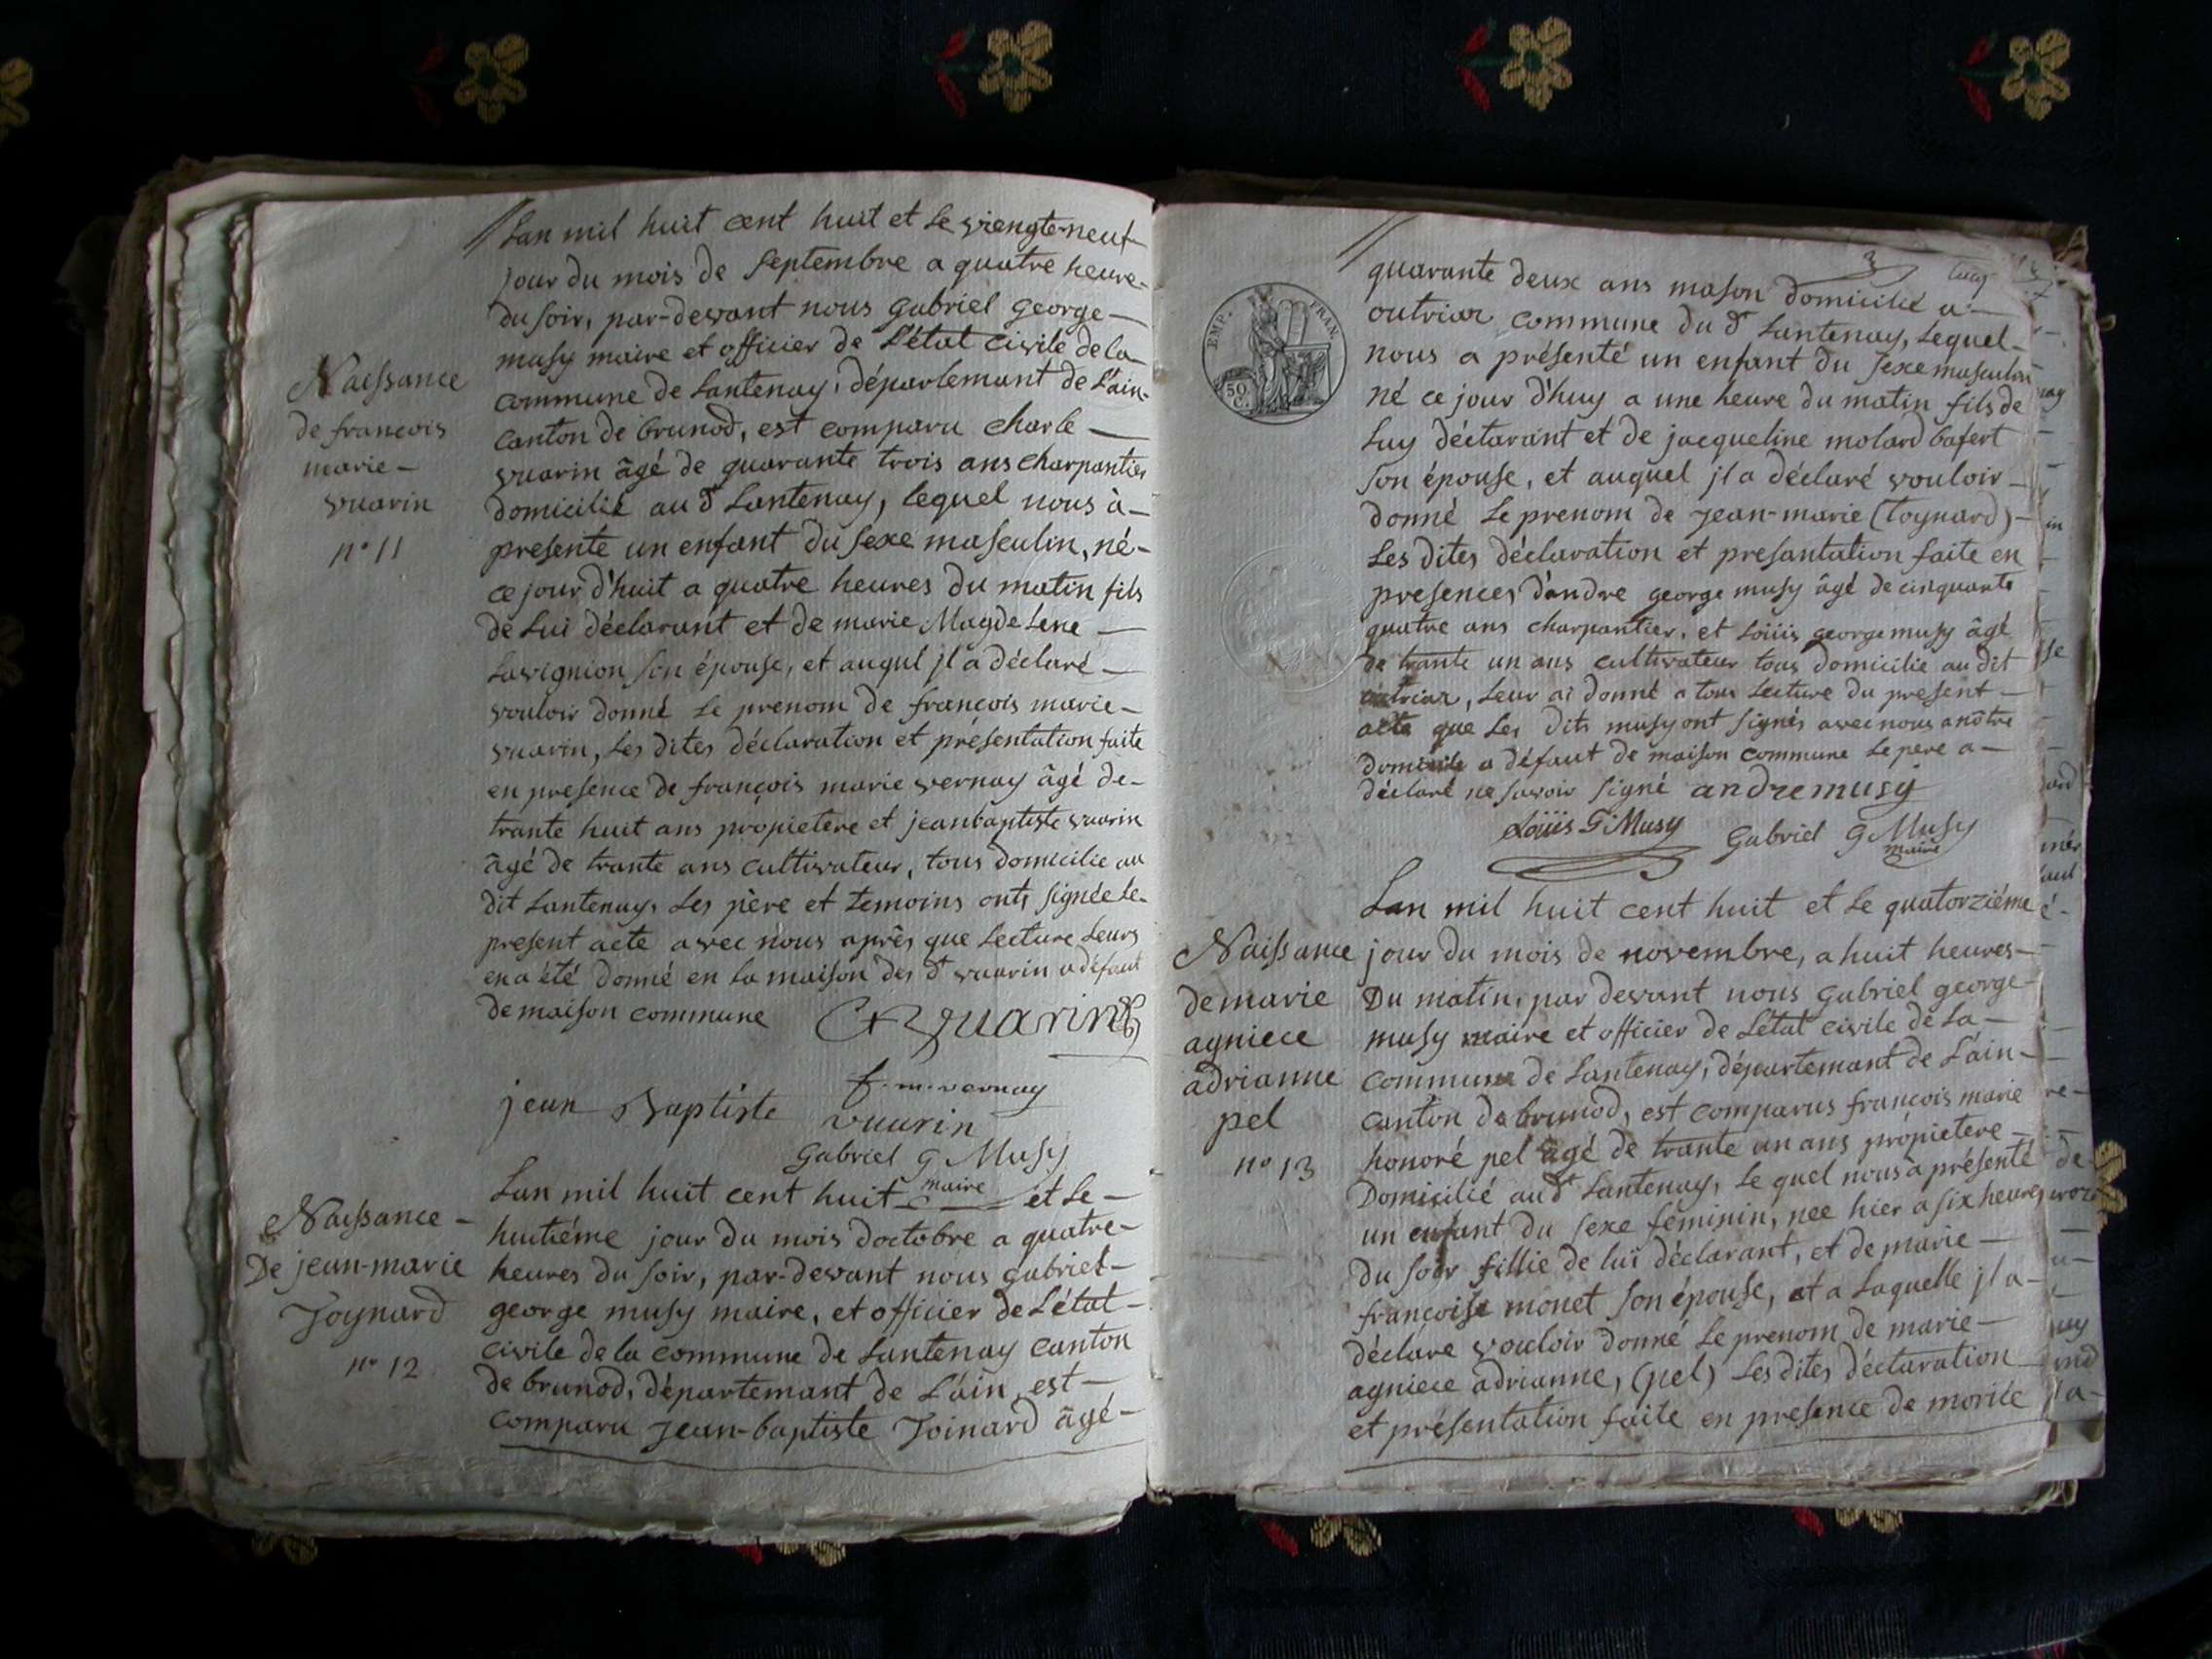 Lan mil huit cent huit et le viengt-neuf
jour du mois de septembre a quatre heure
du soir, par-devant nous gabriel george
musy maire et officier de L'état civile de la
commune de Lantenay, département de L'ain
canton de brunod, est comparu charle
vuarin âgé de quarante trois ans charpantier
domicilié au dt Lantenay, lequel nous à
presente un enfant du sexe masculin, né
ce jour d'huit a quatre heures du matin fils
de Lui déclarant et de marie Magdelene
Savignion son épouse, et auqul jl a déclaré
vouloir donné le prenom de francois marie
vuarin, les dites déclaration et présentation faite
en presence de françois marie vernay âgé de
trante huit ans propietere et jeanbaptiste vuarin
âgé de trante ans cultivateur, tous domicilie au
dit Lantenay. Les père et temoins onts signée le
present acte avec nous après que lecture leurs
en a été donné en la maison des dt vuarin a défaut
de maison commune
Naissance
de francois
marie
vuarin
n° 11
vuarin
f. m. vernay
jean Baptiste vuarin
Gabriel G Musy
maire
Naissance
De jean-marie
Joynard
n° 12
Lan mil huit cent huit et le
huitiéme jour du mois doctobre a quatre
heures du soir, par-devant nous gabriel
george musy maire, et officier de L'état
civile de la commune de Lantenay canton
de brunod, département de L'ain, est
comparu jean-baptiste Joinard âgé
quarante deux ans mason domicilié a
outriaz commune du dt Lantenay, lequel
nous a présenté un enfant du sexe masculin
né ce jour d'huy a une heure du matin fils de
Luy déclarant et de jacqueline molard bafert
son épouse, et auquel jl a déclaré vouloir
donné le prenom de jean-marie (Toynard)
Les dites déclaration et presantation faite en
presences d'andre george musy âgé de cinquante
quatre ans charpantier, et Loüis george musy âgé
de trante un ans cultivateur tous domicilie au dit
outriaz, leur ai donné a tous lecture du present
acte que les dits musy ont signés avec nous a nôtre
domicile a défaut de maison commune le pere a
déclaré ne savoir signé andre musy
Loüis G Musy
Gabriel G Musy
maire
EMP. FRAN.
50 C.
Naissance
de marie
agniece
adrianne
pel
n° 13
Lan mil huit cent huit et le quatorziéme
jour du mois de novembre, a huit heures
Du matin, par devant nous gabriel george
musy maire et officier de L'état civile de la
commune de Lantenay, département de L'ain
canton de brunod, est comparus francois marie
honoré pel âgé de trante un ans propietere
Domicilié au dt Lantenay, le quel nous a présenté
un enfant du sexe féminin, nee hier a six heures
du soir fillie de luï déclarant, et de marie
francoise monet son épouse, et a laquelle jl a
déclare vouloir donné le prenom de marie
agniece adrianne, (pel) Les dites déclaration
et présentation faite en presence de morile